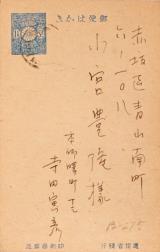 郵便はかき
赤坂區青山南町
六ノ一〇八
小宮豊隆様
本郷曙町
寺田寅彦